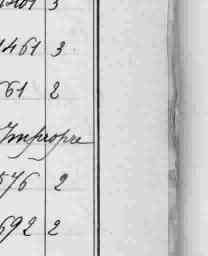 1461 3
61 2
Impropre
576 2
692 2